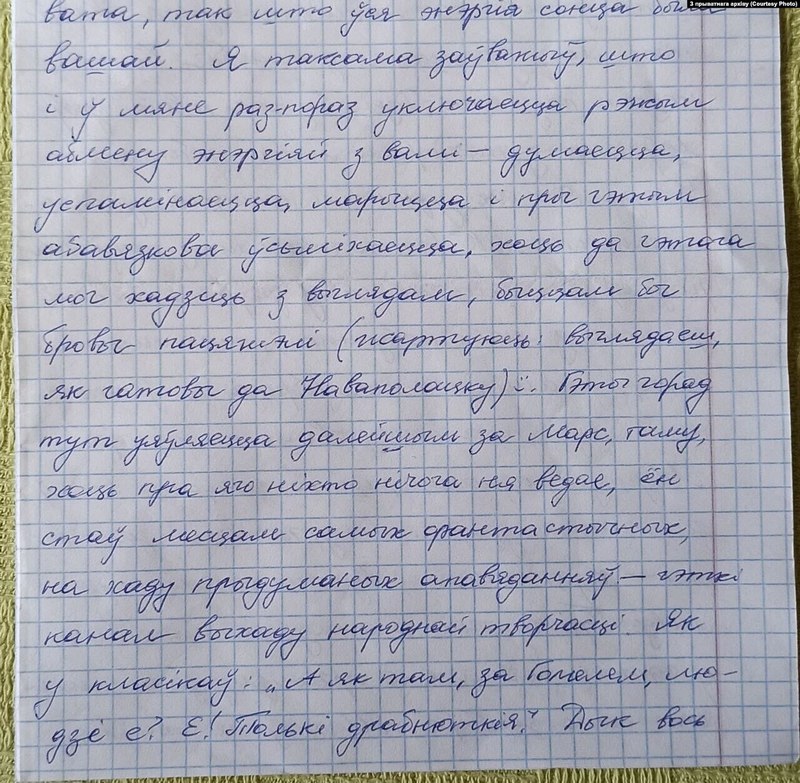 З прыватнага архіву (Courtesy Photo)
вата, так што ўся энэргія сонца была
вашай. Я таксама заўважыў, што
і ў мяне раз-пораз уключаецца рэжым
абмену энэргіяй з вамі – думаецца,
успамінаецца, марыцца і пры гэтым
абавязкова ўсьміхаецца, хоць да гэтага
мог хадзіць з выглядам, быццам бы
бровы пацяжэлі (жартуюць: выглядаеш,
як гатовы да Наваполацку) :. Гэты горад
тут уяўляецца далейшым за Марс, таму,
хоць пра яго ніхто нічога ня ведае, ён
стаў месцам самых фантастычных,
на хаду прыдуманых апавяданняў – гэткі
канал выхаду народнай творчасці. Як
у класікаў: „А як там, за Гомелем, лю-
дзі е? Е! Толькі драбнюткія." Дык вось